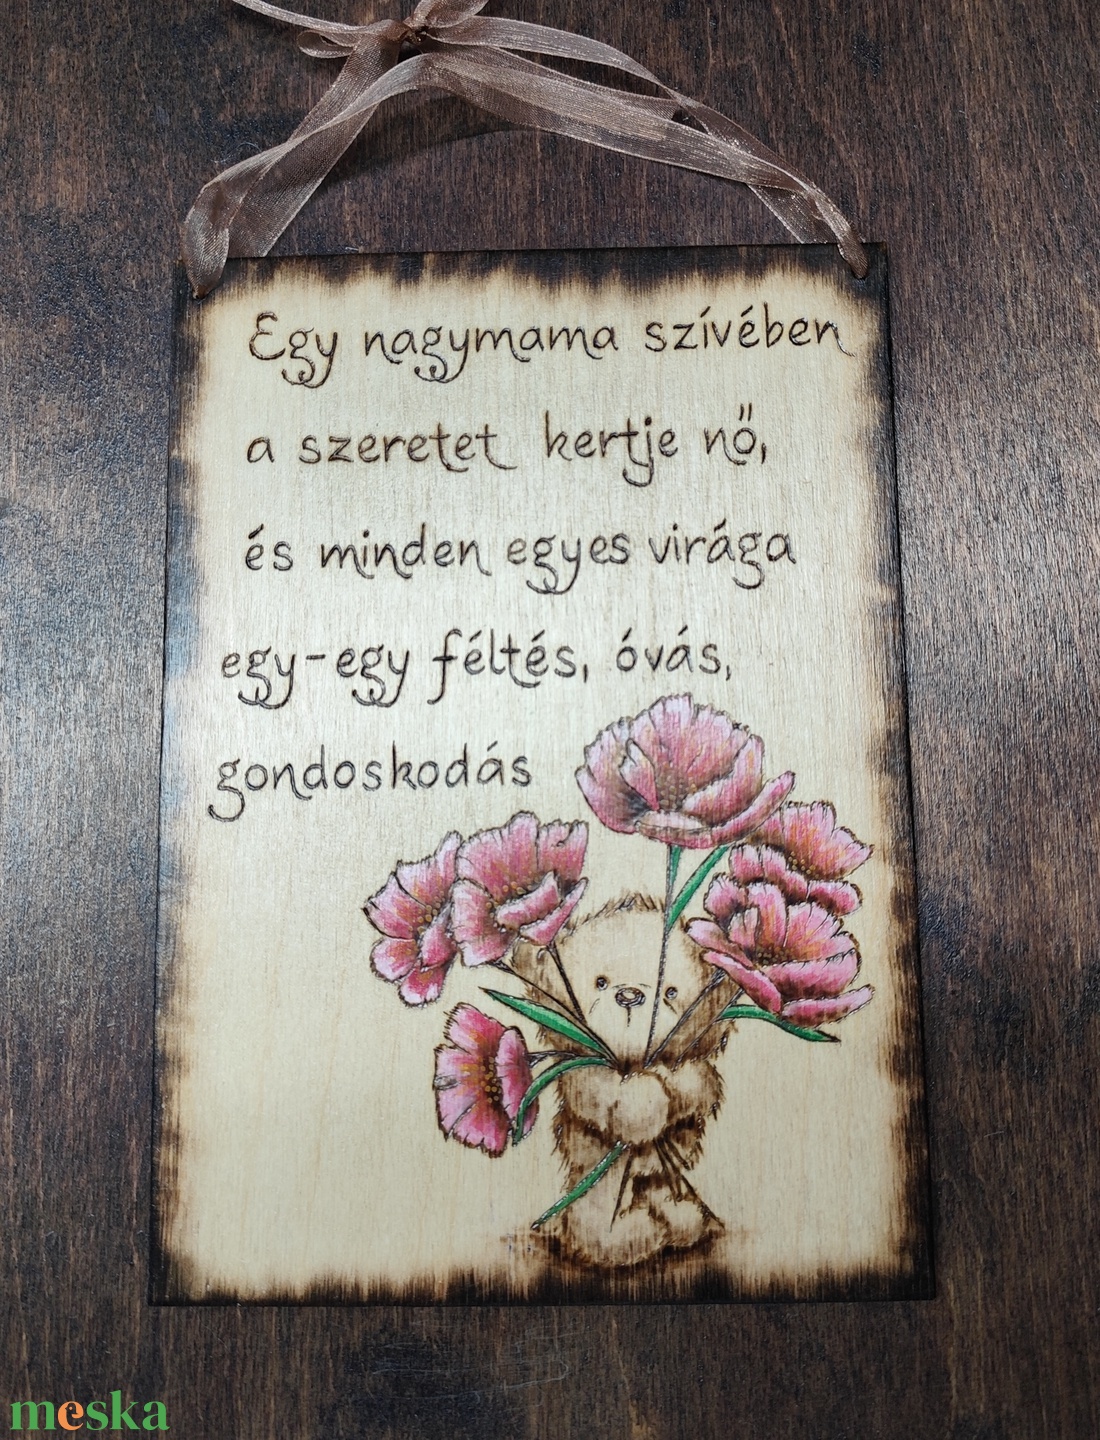 Egy nagymama szívében
a szeretet kertje nő,
és minden egyes virága
egy-egy féltés, óvás,
gondoskodás
meska